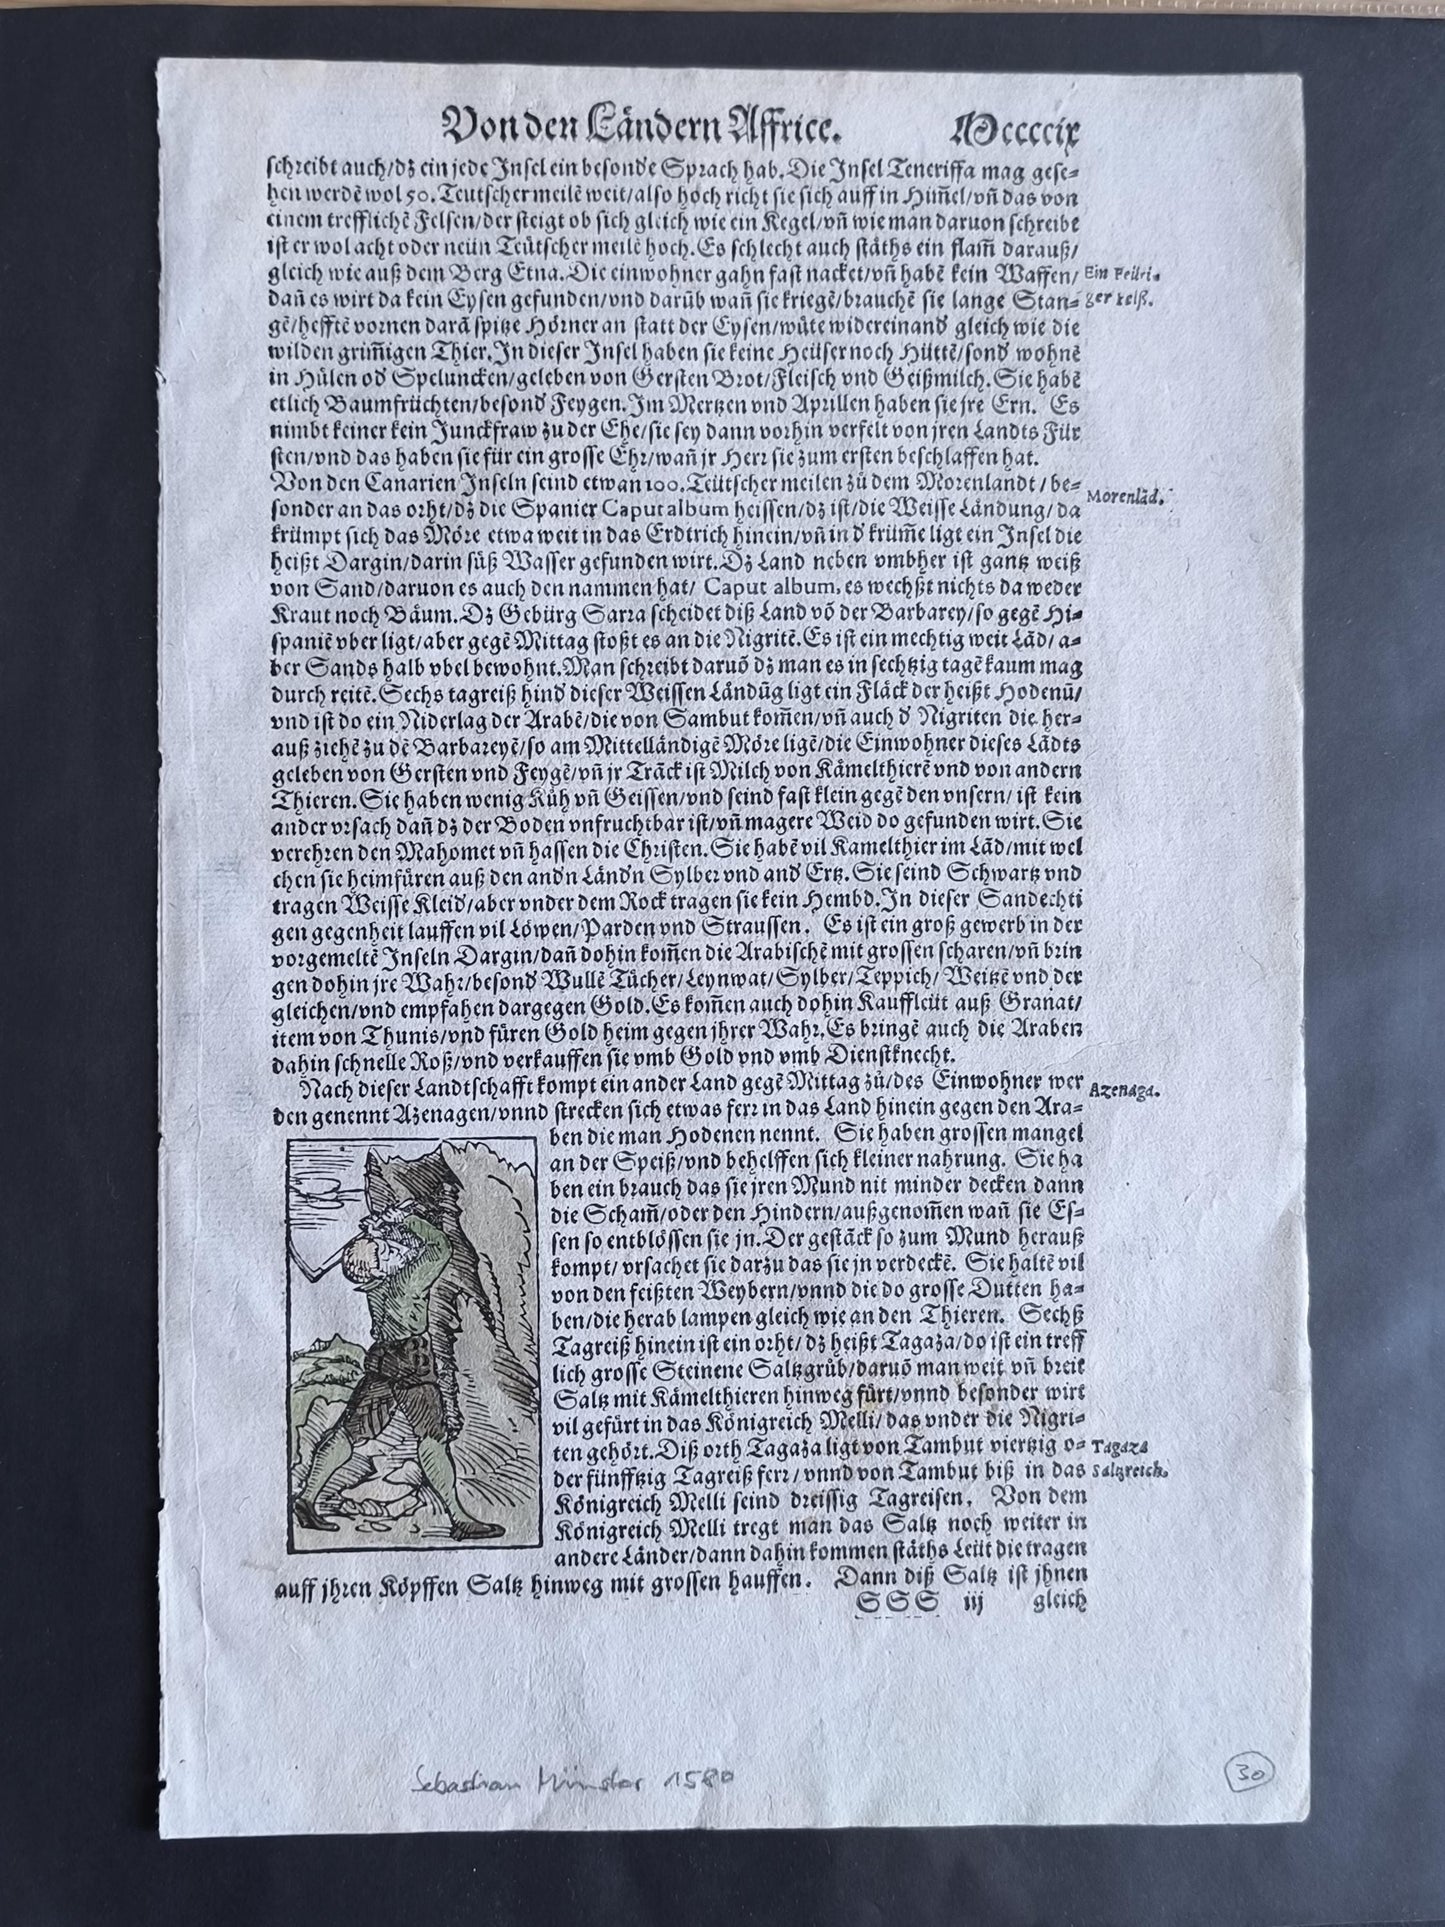 Von den Ländern Affrice. Mccccix
schreibt auch/dz ein jede Insel ein besond'e Sprach hab. Die Insel Teneriffa mag gese-
hen werdẽ wol 50. Teutscher meilẽ weit/also hoch richt sie sich auff in Him̃el/vñ das von
einem trefflichẽ Felsen/der steigt ob sich gleich wie ein Kegel/vñ wie man daruon schreibt
ist er wol acht oder neün Teütscher meilẽ hoch. Es schlecht auch stäths ein flam̃ darauß/
gleich wie auß dem Berg Etna. Die einwohner gahn fast nacket/vñ habẽ kein Waffen/ Ein Feüri-
dañ es wirt da kein Eysen gefunden/vnd darũb wañ sie kriegẽ/brauchẽ sie lange Stan- ger Felß.
gẽ/hefftẽ vornen darã spitze Hörner an statt der Eysen/wüte widereinand' gleich wie die
wilden grim̃igen Thier. In dieser Insel haben sie keine Heüser noch Hüttẽ/sond' wohnẽ
in Hülen od' Speluncken/geleben von Gersten Brot/Fleisch vnd Geißmilch. Sie habẽ
etlich Baumfrüchten/besond' Feygen. Im Mertzen vnd Aprillen haben sie jre Ern. Es
nimbt keiner kein Junckfraw zu der Ehe/sie sey dann vorhin verfelt von jren Landts Für
sten/vnd das haben sie für ein grosse Ehr/wañ jr Herr sie zum ersten beschlaffen hat.
Von den Canarien Inseln seind etwan 100. Teütscher meilen zů dem Morenlandt/be- Morenlãd.
sonder an das orht/dz die Spanier Caput album heissen/dz ist/die Weisse Ländung/da
krümpt sich das Möre etwa weit in das Erdtrich hinein/vñ in d' krüm̃e ligt ein Insel die
heißt Dargin/darin süß Wasser gefunden wirt. Dz Land neben vmbher ist gantz weiß
von Sand/daruon es auch den nammen hat/ Caput album, es wechßt nichts da weder
Kraut noch Bäum. Dz Gebürg Sarra scheidet diß Land võ der Barbarey/so gegẽ Hi-
spaniẽ vber ligt/aber gegẽ Mittag stoßt es an die Nigritẽ. Es ist ein mechtig weit Lãd/a-
ber Sands halb vbel bewohnt. Man schreibt daruõ dz man es in sechtzig tagẽ kaum mag
durch reitẽ. Sechs tagreiß hind' dieser Weissen Ländũg ligt ein Fläck der heißt Hodenũ/
vnd ist do ein Niderlag der Arabẽ/die von Sambut kom̃en/vñ auch d' Nigriten die her-
auß ziehẽ zu dẽ Barbareyẽ/so am Mittelländigẽ Möre ligẽ/die Einwohner dieses Lãdts
geleben von Gersten vnd Feygẽ/vñ jr Trãck ist Milch von Kämelthierẽ vnd von andern
Thieren. Sie haben wenig Küh vñ Geissen/vnd seind fast klein gegẽ den vnsern/ ist kein
ander vrsach dañ dz der Boden vnfruchtbar ist/vñ magere Weid do gefunden wirt. Sie
verehren den Mahomet vñ hassen die Christen. Sie habẽ vil Kamelthier im Lãd/mit wel
chen sie heimfüren auß den and'n Länd'n Sylber vnd and' Ertz. Sie seind Schwartz vnd
tragen Weisse Kleid/aber vnder dem Rock tragen sie kein Hembd. In dieser Sandechti
gen gegenheit lauffen vil Löwen/Parden vnd Straussen. Es ist ein groß gewerb in der
vorgemeltẽ Inseln Dargin/dañ dohin kom̃en die Arabischẽ mit grossen scharen/vñ brin
gen dohin jre Wahr/besond' Wullẽ Tücher/Leynwat/Sylber/Teppich/ Weitzẽ vnd der
gleichen/vnd empfahen dargegen Gold. Es kom̃en auch dohin Kauffleüt auß Granat/
item von Thunis/vnd füren Gold heim gegen jhrer Wahr. Es bringẽ auch die Araben
dahin schnelle Roß/vnd verkauffen sie vmb Gold vnd vmb Dienstknecht.
Nach dieser Landtschafft kompt ein ander Land gegẽ Mittag zů/des Einwohner wer Azenaga.
den genennt Azenagen/vnnd strecken sich etwas ferr in das Land hinein gegen den Ara-
ben die man Hodenen nennt. Sie haben grossen mangel
an der Speiß/vnd behelffen sich kleiner nahrung. Sie ha
ben ein brauch das sie jren Mund nit minder decken dann
die Scham̃/oder den Hindern/außgenom̃en wañ sie Es-
sen so entblössen sie jn. Der gestãck so zum Mund herauß
kompt/ vrsachet sie darzu das sie jn verdeckẽ. Sie haltẽ vil
von den feißten Weybern/vnnd die do grosse Dutten ha-
ben/die herab lampen gleich wie an den Thieren. Sechß
Tagreiß hinein ist ein orht/ dz heißt Tagaza/do ist ein treff
lich grosse Steinene Saltzgrůb/daruõ man weit vñ breit
Saltz mit Kämelthieren hinweg fürt/vnnd besonder wirt
vil gefürt in das Königreich Melli/das vnder die Nigri-
ten gehört. Diß orth Tagaza ligt von Tambut viertzig o- Tagaza
der fünfftzig Tagreiß ferr/vnnd von Tambut biß in das Saltzreich.
Königreich Melli seind dreissig Tagreisen. Von dem
Königreich Melli tregt man das Saltz noch weiter in
andere Länder/dann dahin kommen stäths Leüt die tragen
auff jhren Köpffen Saltz hinweg mit grossen hauffen. Dann diß Saltz ist jhnen
SSS iij gleich
Sebastian Münster 1580
30